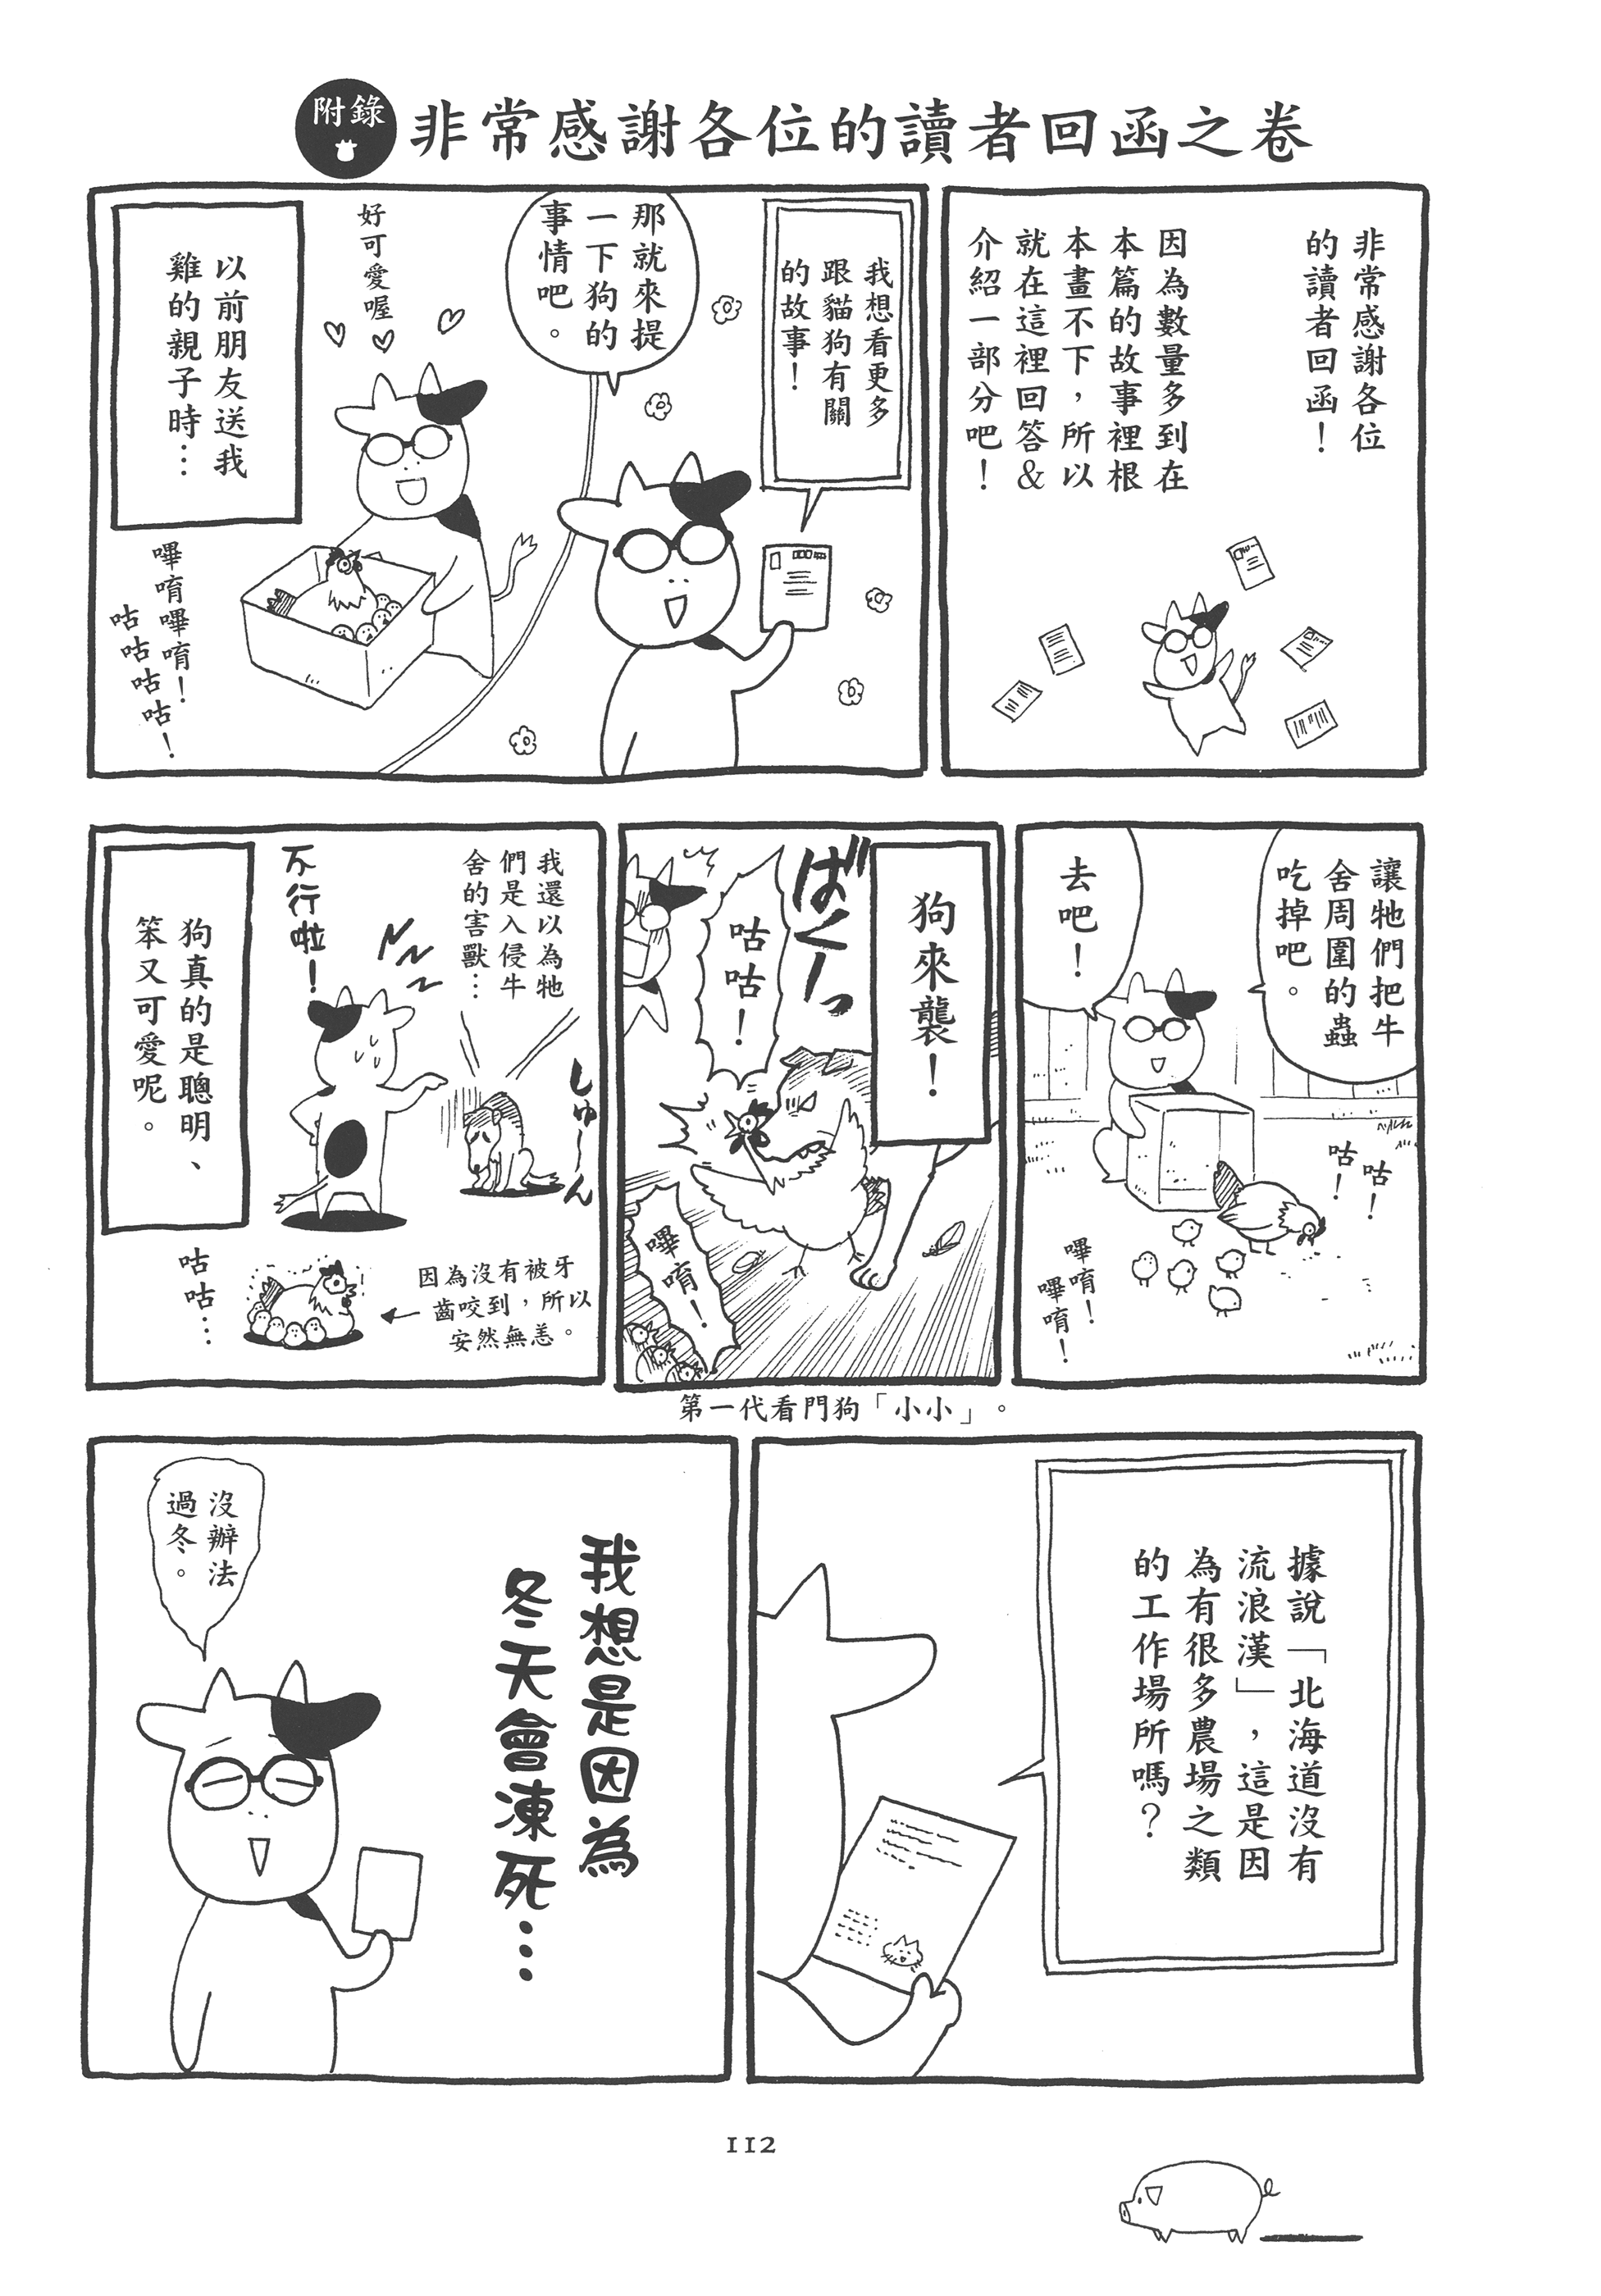 附錄
非常感謝各位的讀者回函之卷
非常感謝各位
的讀者回函！
因為數量多到在
本篇的故事裡根
本畫不下，所以
就在這裡回答&
介紹一部分吧！
我想看更多
跟貓狗有關
的故事！
那就來提
一下狗的
事情吧。
好可愛喔
以前朋友送我
雞的親子時…
嗶唷嗶唷！
咕咕咕咕！
讓牠們把牛
舍周圍的蟲
吃掉吧。
去吧！
咕！
咕！
嗶唷！
嗶唷！
狗來襲！
ばくーっ
咕咕！
嗶唷！
第一代看門狗「小小」。
我還以為牠
們是入侵牛
舍的害獸…
しゅーん
不行啦！
因為沒有被牙
齒咬到，所以
安然無恙。
咕咕…
狗真的是聰明、
笨又可愛呢。
據說「北海道沒有
流浪漢」，這是因
為有很多農場之類
的工作場所嗎？
我想是因為
冬天會凍死……
沒辦法
過冬。
112